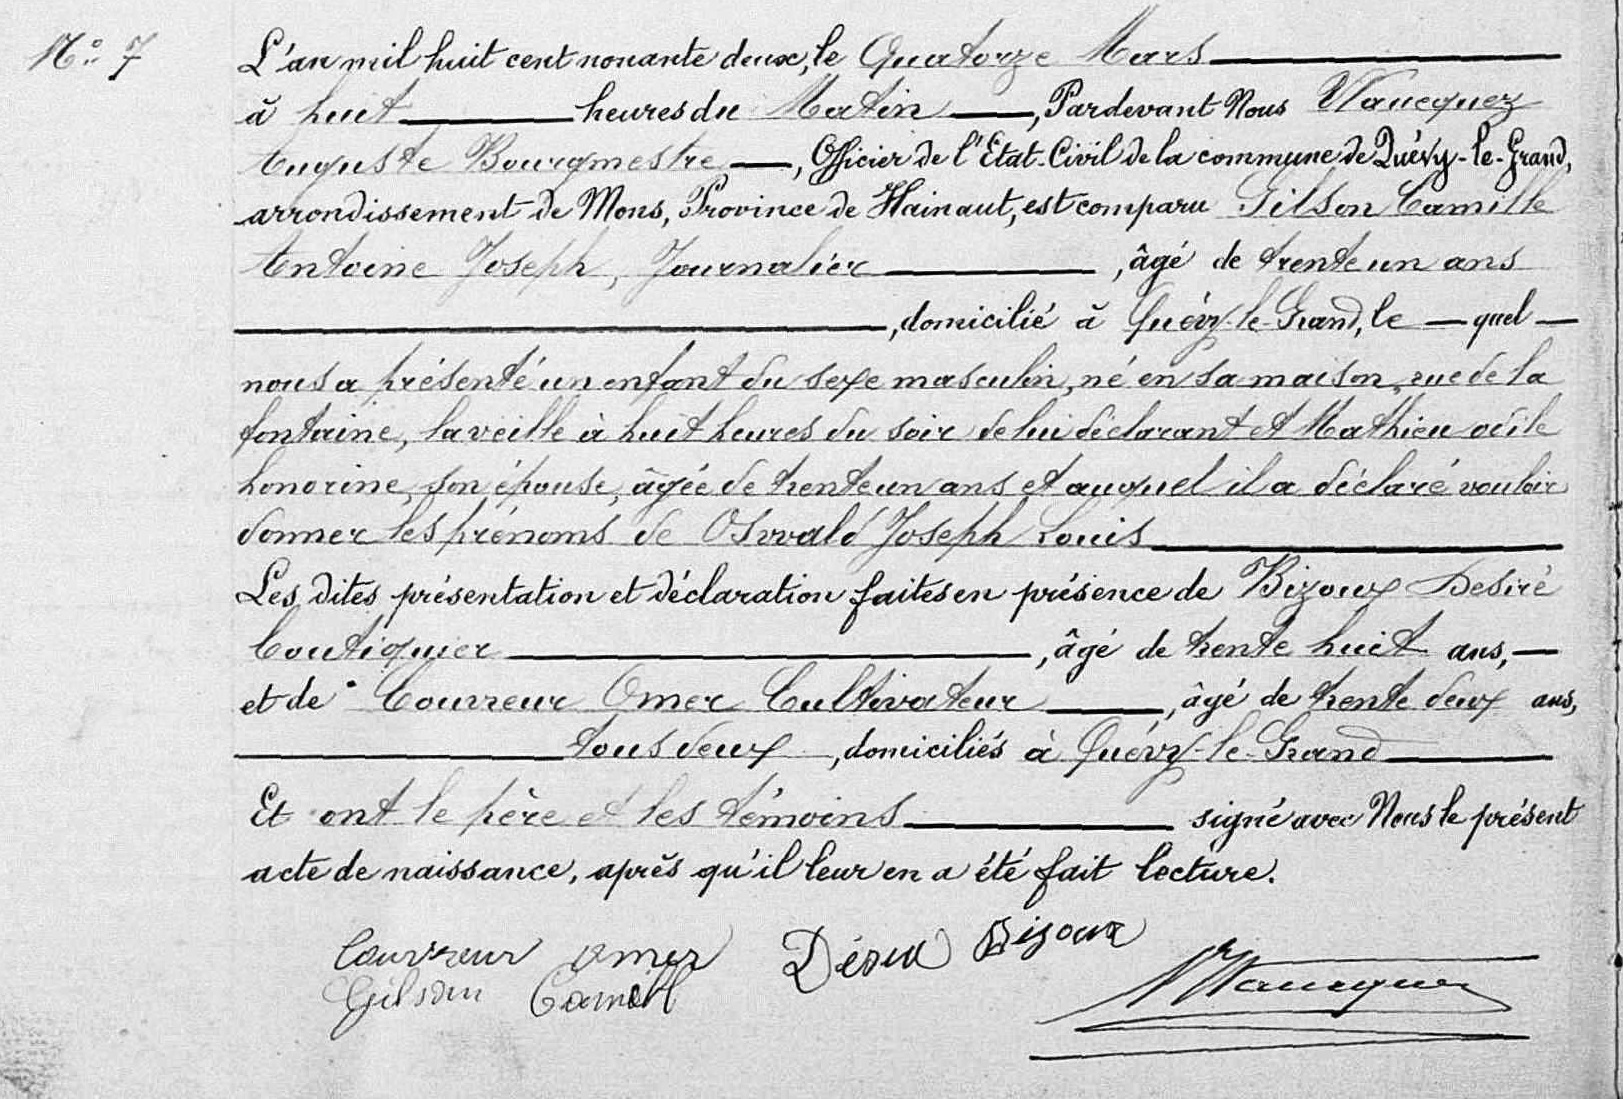 N° 7
L'an mil huit cent nonante deux, le Quatorze Mars
à huit heures du Matin, Pardevant Nous Waucquez
Auguste Bourgmestre, Officier de l'Etat-Civil de la commune de Quévy-le-Grand,
arrondissement de Mons, Province de Hainaut, est comparu Gilson Camille
Antoine Joseph, Journalier, âgé de trente un ans
, domicilié à Quévy-le-Grand, le quel
nous a présenté un enfant du sexe masculin, né en sa maison, rue de la
fontaine, la veille à huit heures du soir de lui déclarant et Mathieu odile
honorine, son épouse, âgée de trente un ans et auquel il a déclaré vouloir
donner les prénoms de Oswald Joseph Louis
Les dites présentation et déclaration faites en présence de Bizoux Desiré
boutiquier, âgé de trente huit ans,
et de Couvreur Omer Cultivateur, âgé de trente deux ans,
tous deux, domiciliés à Quévy-le-Grand
Et ont le père et les témoins signé avec Nous le présent
acte de naissance, après qu'il leur en a été fait lecture.
Couvreur Omer Désiré Bizoux
Gilson Camill
Waucquez